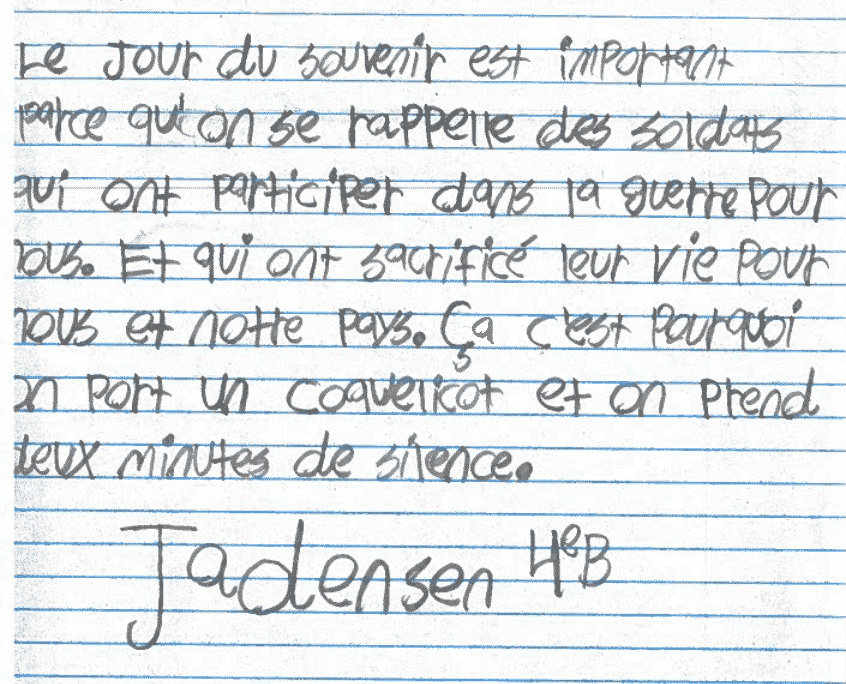 Le Jour du souvenir est important
parce qu'on se rappelle des soldats
qui ont participer dans la guerre pour
nous. Et qui ont sacrificé leur vie pour
nous et notre pays. Ça c'est pourquoi
on port un coquelicot et on prend
deux minutes de silence.
Jadensen 4eB